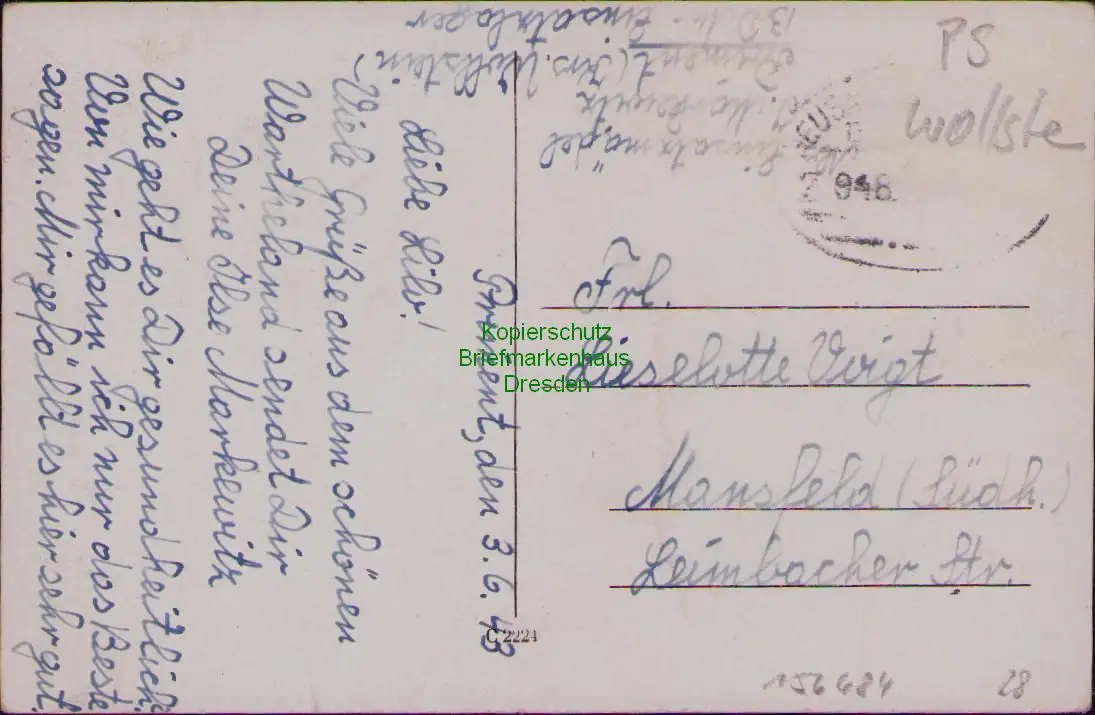 Priment, den 3.6.43
Liebe Lilo!
Viele Grüße aus dem schönen
Wartheland sendet Dir
Deine Ilse Markewitz
Wie geht es Dir gesundheitlich?
Von mir kann ich nur das Beste
sagen. Mir gefällt es hier sehr gut.
Einsatzmädel
I. Markewitz
Priment (Krs. Wollstein)
BDM. Einsatzlager
PS
wollste
948
Frl.
Lieselotte Voigt
Mansfeld (Südh.)
Leimbacher Str.
C 2224
156684 28
Kopierschutz
Briefmarkenhaus
Dresden